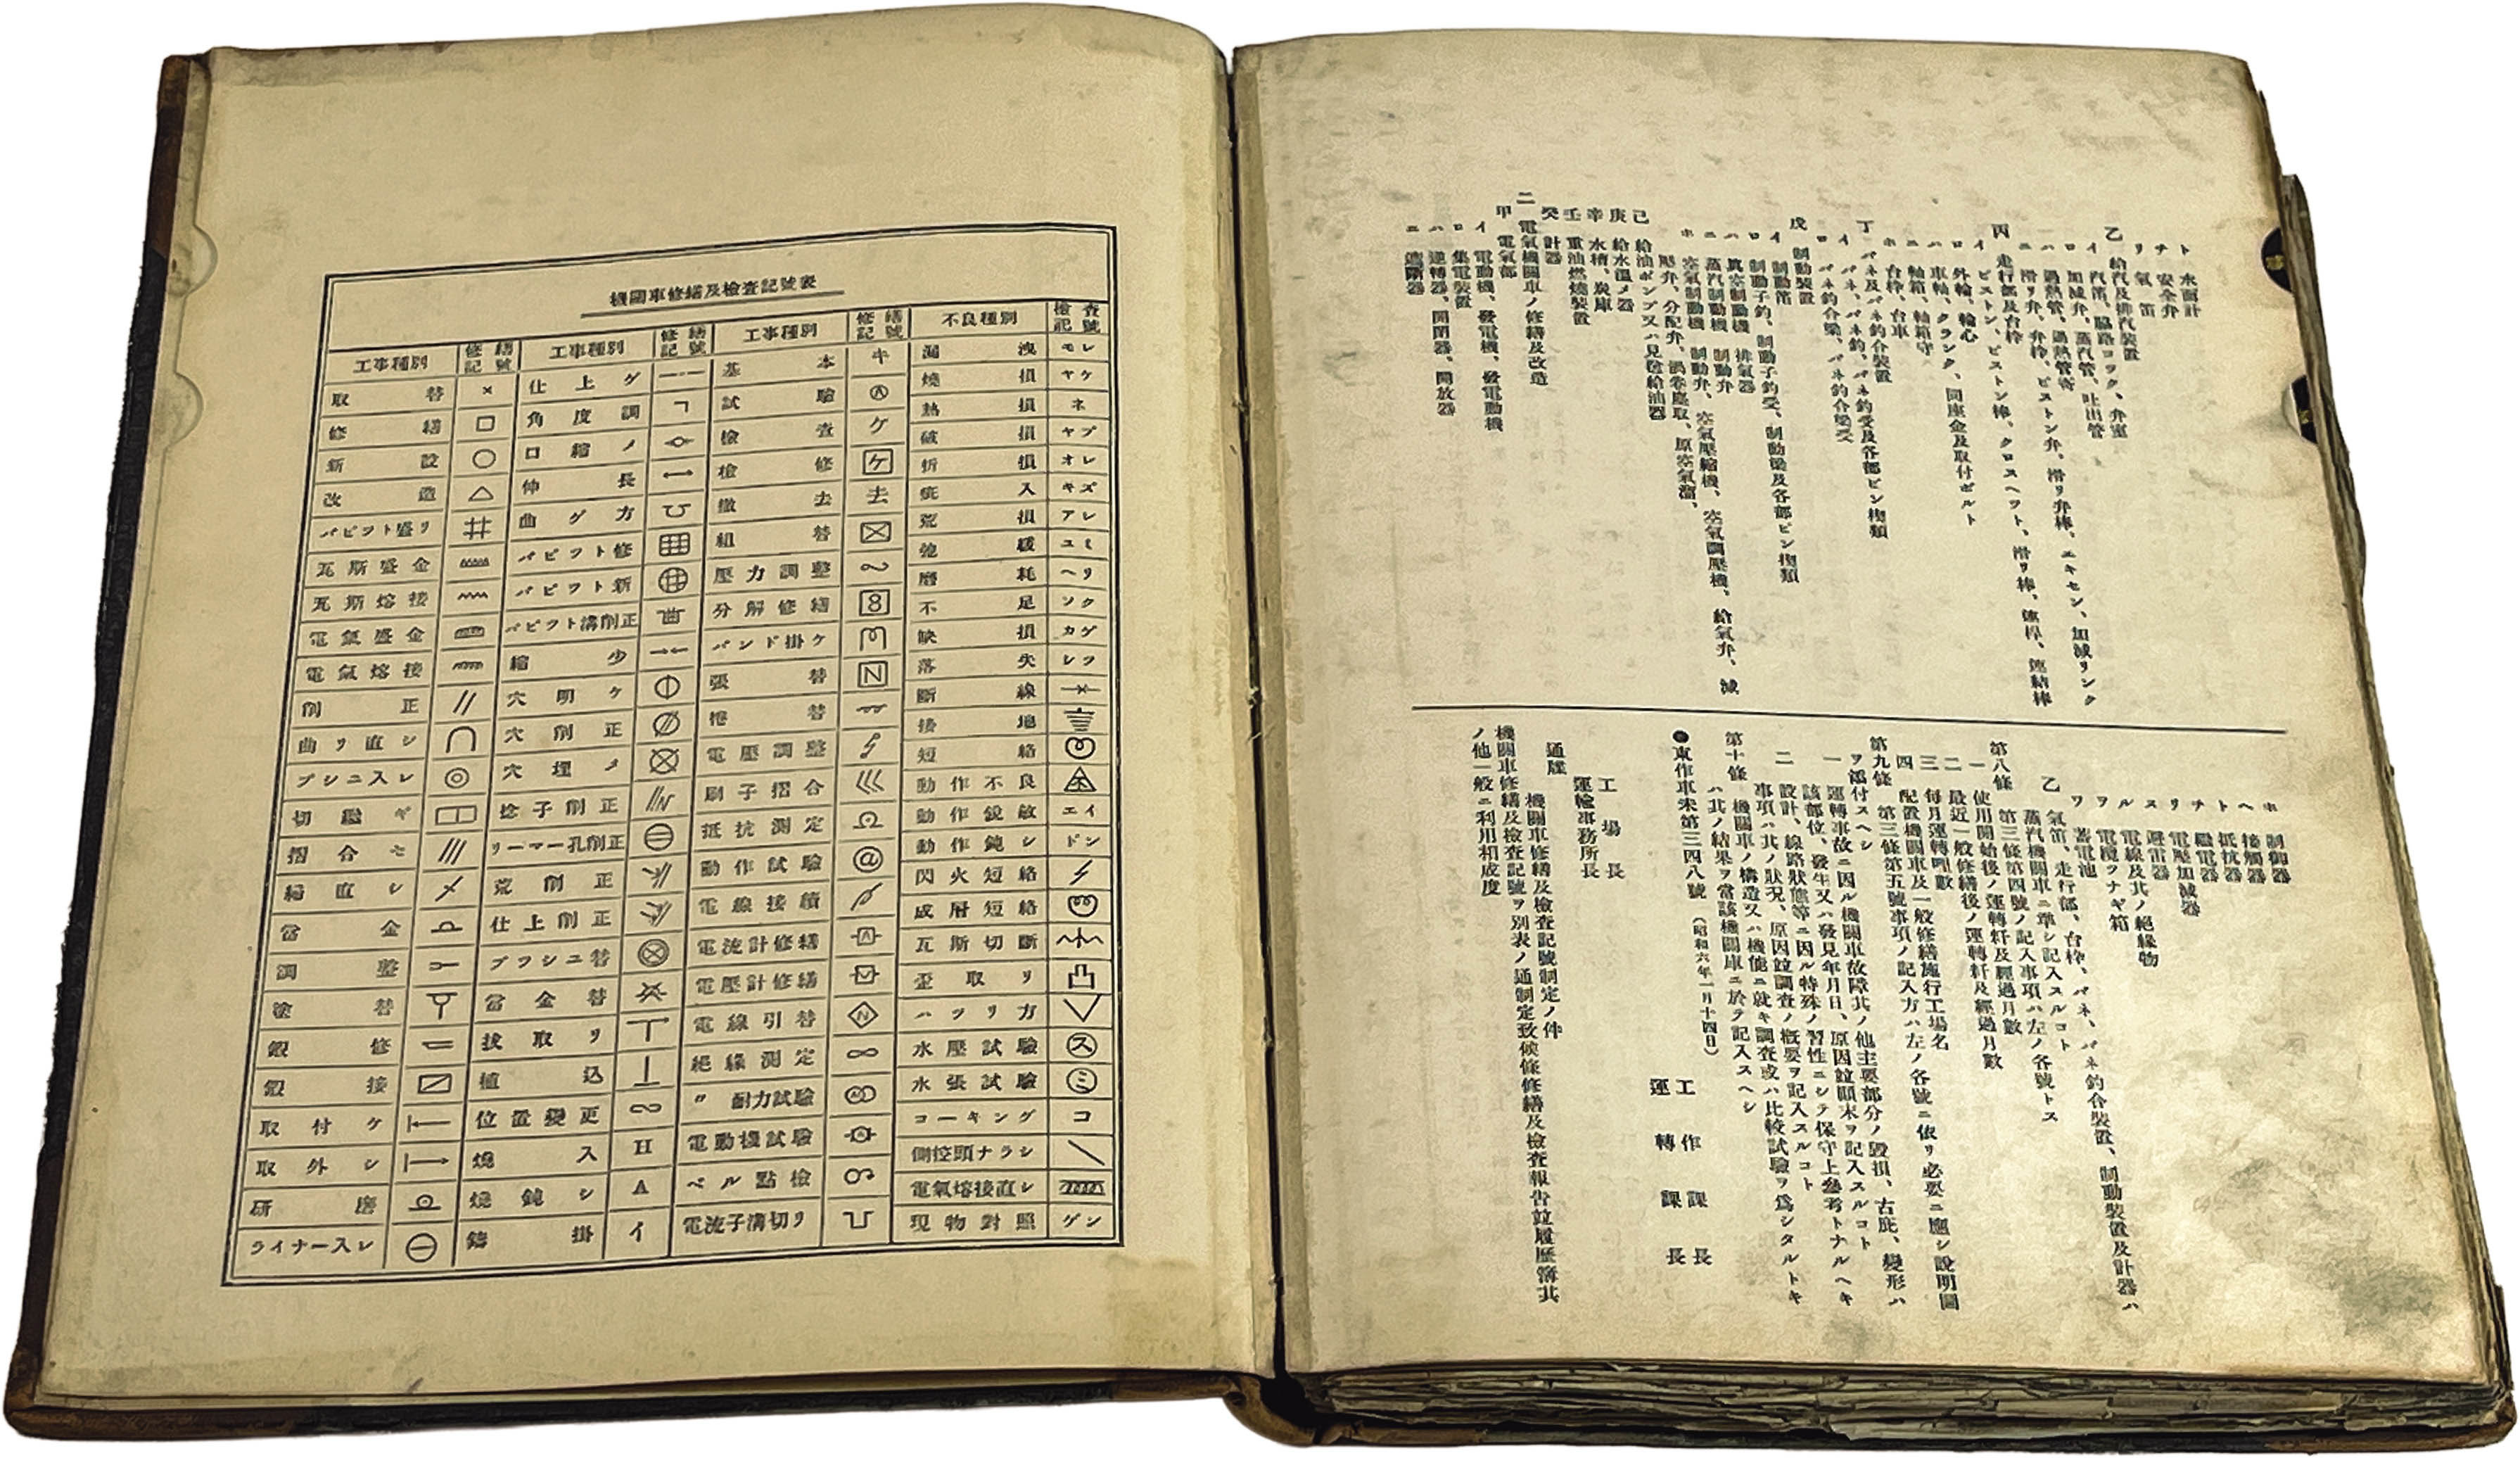 ト 水面計
チ 安全弁
リ 氣笛
乙 給汽及排汽裝置
イ 汽笛、脇路コック、弁室
ロ 加減弁、蒸汽管、吐出管
ハ 過熱管、過熱管寄
ニ 滑リ弁、弁枠、ピストン弁、滑リ弁棒、エキセン、加減リンク
丙 走行部及台枠
イ ピストン、ピストン棒、クロスヘツト、滑リ棒、連桿、連結棒
ロ 外輪、輪心
ハ 車軸、クランク、同座金及取付ボルト
ニ 軸箱、軸箱守
ホ 台枠、台車
丁 バネ及バネ釣合裝置
イ バネ、バネ釣、バネ釣受及各部ピン類
ロ バネ釣合梁、バネ釣合梁受
戊 制動裝置
イ 制動笛
ロ 制動子釣、制動子釣受、制動梁及各部ピン類
ハ 眞空制動機 排氣器
ニ 蒸汽制動機 制動弁
ホ 空氣制動機 制動弁、空氣壓縮機、空氣調壓機、給氣弁、減
壓弁、分配弁、渦卷塵取、原空氣溜、
己 給油ポンプ又ハ見送給油器
庚 給水溫メ器
辛 水槽、炭庫
壬 重油燃燒裝置
癸 計器
二 電氣機關車ノ修繕及改造
甲 電氣部
イ 電動機、發電機、發電動機
ロ 集電裝置
ハ 逆轉器、開閉器、開放器
ニ 遮斷器
ホ 制御器
ヘ 接觸器
ト 抵抗器
チ 繼電器
リ 電壓加減器
ヌ 避雷器
ル 電線及其ノ絕緣物
ヲ 電纜ツナギ箱
ワ 蓄電池
乙 氣笛、走行部、台枠、バネ、バネ釣合裝置、制動裝置及計器ハ
蒸汽機關車ニ準シ記入スルコト
第八條 第三條第四號ノ記入事項ハ左ノ各號トス
一 使用開始後ノ運轉粁及經過月數
二 最近一般修繕後ノ運轉粁及經過月數
三 每月運轉哩數
四 配置機關車及一般修繕施行工場名
第九條 第三條第五號事項ノ記入方ハ左ノ各號ニ依リ必要ニ應シ說明圖
ヲ添付スヘシ
一 運轉事故ニ因ル機關車故障其ノ他主要部分ノ毀損、古疵、變形ハ
該部位、發生又ハ發見年月日、原因竝顚末ヲ記入スルコト
二 設計、線路狀態等ニ因ル特殊ノ習性ニシテ保守上參考トナルヘキ
事項ハ其ノ狀況、原因竝調查ノ槪要ヲ記入スルコト
第十條 機關車ノ構造又ハ機能ニ就キ調查或ハ比較試驗ヲ爲シタルトキ
ハ其ノ結果ヲ當該機關庫ニ於テ記入スヘシ
●東作車末第三四八號 (昭和六年一月十四日)
工作課長
運轉課長
工場長
運輸事務所長
通牒
機關車修繕及檢查記號制定ノ件
機關車修繕及檢查記號ヲ別表ノ通制定致候條修繕及檢查報告竝履歷簿其
ノ他一般ニ利用相成度
機關車修繕及檢查記號表
工事種別 修繕記號 工事種別 修繕記號 工事種別 修繕記號 不良種別 檢查記號
取替 × 仕上グ 基本 キ 漏洩 モレ
修繕 □ 角度調 試驗 燒損 ヤケ
新設 ○ 口縮メ 檢查 ケ 熱損 ネ
改造 △ 伸長 檢修 ケ 破損 ヤブ
バビツト盛リ 曲ゲ方 撤去 去 折損 オレ
瓦斯盛金 バビツト修 組替 疵入 キズ
瓦斯熔接 バビツト新 壓力調整 荒損 アレ
電氣盛金 バビツト溝削正 分解修繕 8 弛緩 ユミ
電氣熔接 縮少 バンド掛ケ 磨耗 ヘリ
削正 // 穴明ケ 張替 N 不足 ソク
曲リ直シ 穴削正 捲替 缺損 カケ
ブシユ入レ ◎ 穴埋メ 電壓調整 落失 シツ
切繼ギ 捻子削正 刷子摺合 斷線
摺合セ /// リーマー孔削正 抵抗測定 接地
締直シ 荒削正 動作試驗 @ 短絡
當金 仕上削正 電線接續 動作不良
調整 ブツシユ替 電流計修繕 A 動作銳敏 エイ
塗替 當金替 電壓計修繕 動作鈍シ ドン
鍛修 拔取リ 電線引替 N 閃火短絡
鍛接 植込 絕緣測定 ∞ 成層短絡
取付ケ 位置變更 〃耐力試驗 瓦斯切斷
取外シ 燒入 H 電動機試驗 歪取リ
研磨 燒鈍シ A ベル點檢 ハツリ方
ライナー入レ 鑄掛 イ 電流子溝切リ 水壓試驗 ス
水張試驗 ミ
コーキング コ
側控頭ナラシ
電氣熔接直シ
現物對照 ゲン